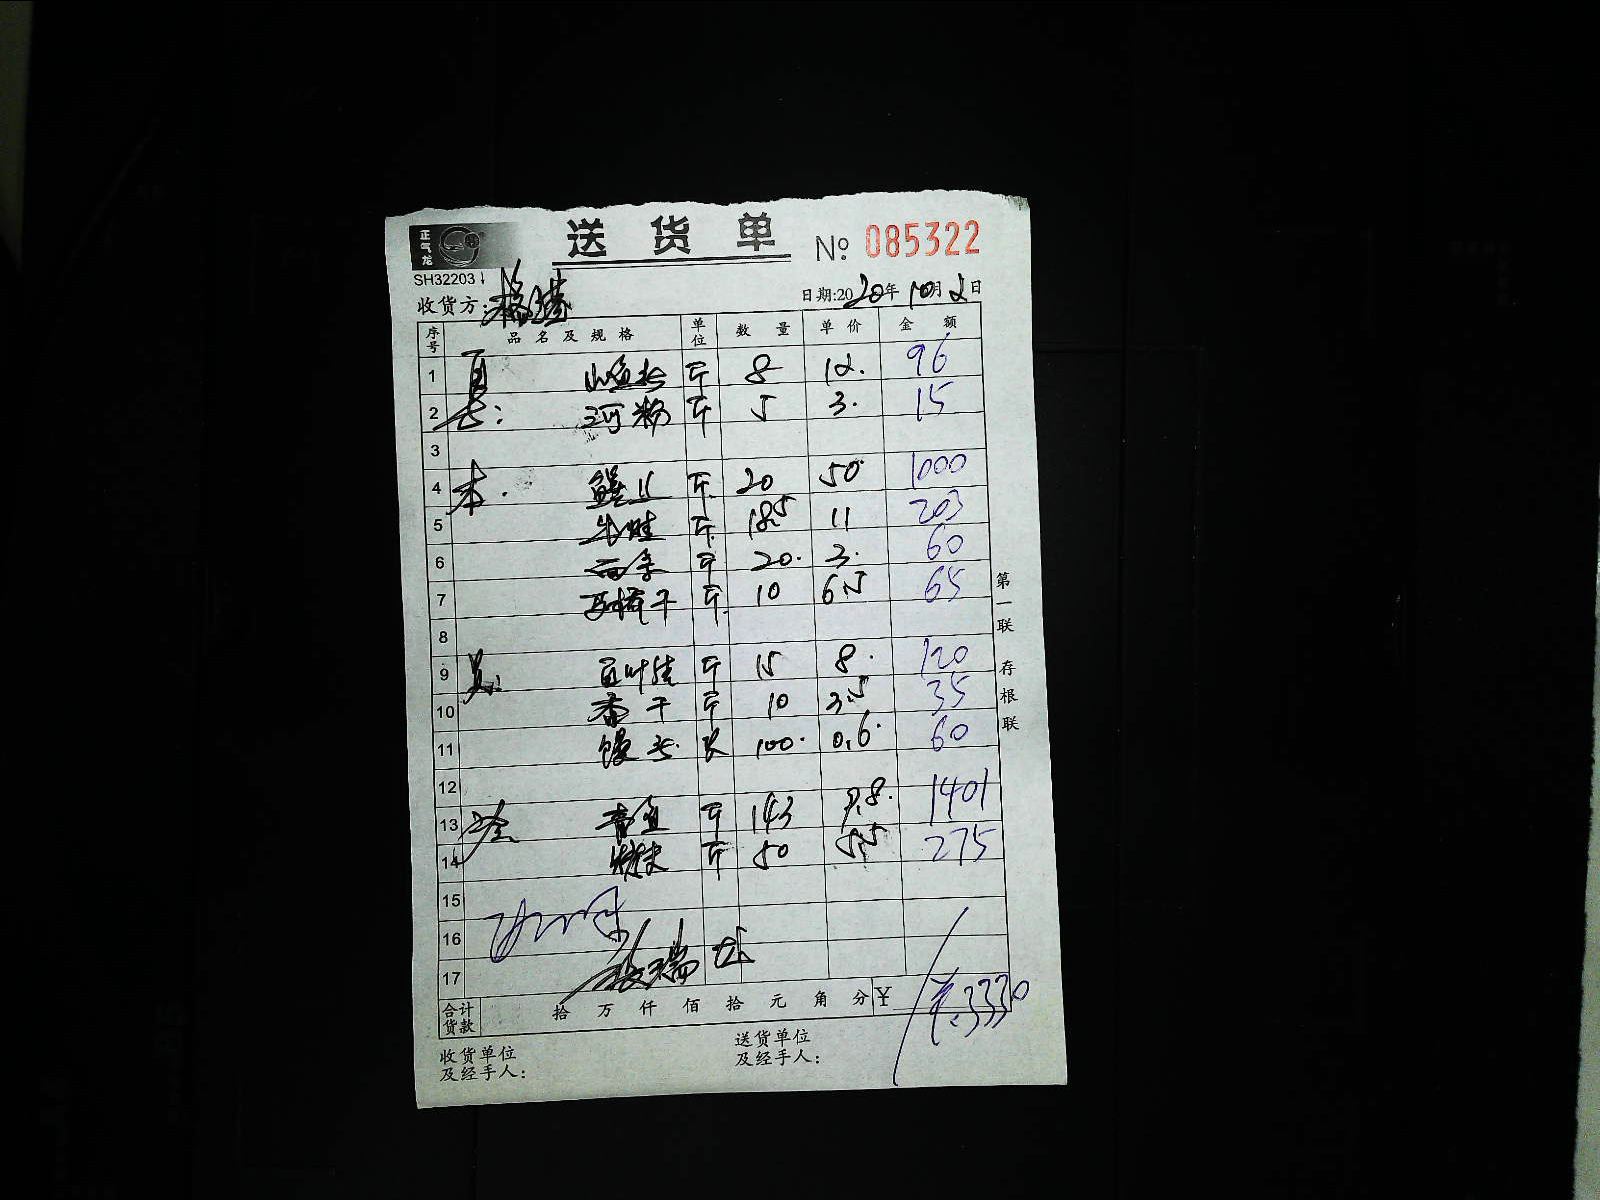 正气龙
送货单 № 085322
SH32203
收货方: 日期:2020年10月2日
序号 品名及规格 单位 数量 单价 金额
1 斤 8 12. 96
2 河粉 斤 5 3. 15
3
4 本. 斤 20 50 1000
5 牛蛙 斤 18.5 11 203
6 斤 20. 3. 60
7 干 斤 10 6.5 65
8
9 百叶结 斤 15 8. 120
10 香干 斤 10 3.5 35
11 馒头 100. 0.6. 60
12
13 青鱼 斤 143 9.8. 1401
14 斤 50 5.5 275
15
16
17
合计货款 拾万仟佰拾元角分 ¥ ¥.3330
收货单位
及经手人:
送货单位
及经手人:
第一联 存根联